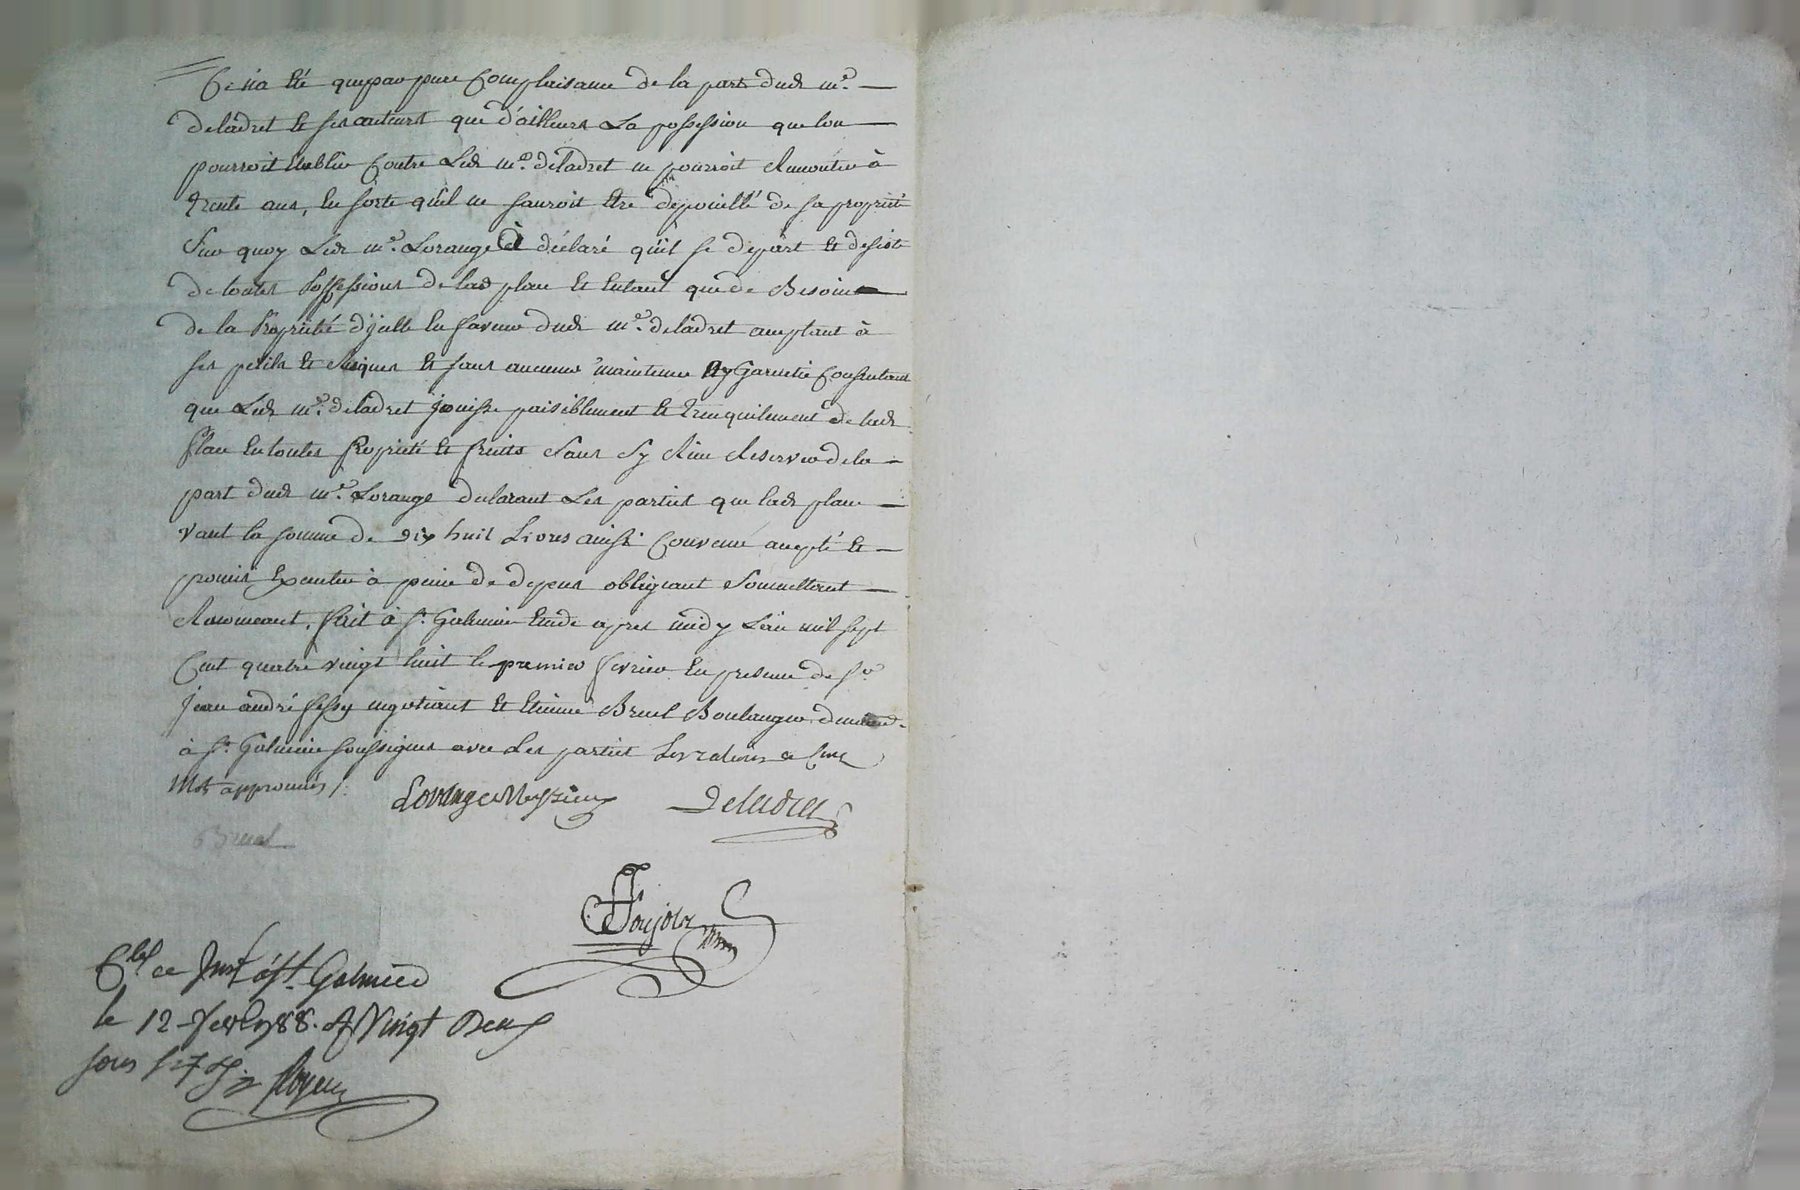 Ce n'a été que par pure Complaisance de la part dudt mr.
deladret et ses auteurs que d'ailleurs La possession que lon
pourroit Etablir Contre Ledt mr. deladret ne pourroit Remonter à
Trente ans, En sorte qu'il ne sauroit Etre dépouillé de sa propriété
Sur quoy Ledt mr. Lorange à déclaré qu'il se départ et desiste
de toutes Possessions de lad plan et Entant que de Besoin
de la Propriété d'jcelle En faveur dudt mr. deladret acceptant à
ses périls et Risques et sans aucune maintenue ny Garentie Consentant
que Ledt mr. deladret jouisse paisiblement et Trenquilement de ladt
plan En toutes Propriété et fruits Sans Sy Rien Reserver de la
part dudt mr. Lorange declarant Les parties que ladt plan
vaut la somme de dix huit Livres ainsi Convenu accepté et
promis Executer à peine de depens obligeant Soumettant
Renonceant, fait à St. Galmier Etude après midy L'an mil sept
Cent quatre vingt huit le premier fevrier En presence de Sr
Jean andré fessy negotiant et Etienne Bruel Boulanger demt
à St. Galmier soussignés avec Les parties
Mots approuvés /.
Lorange Deladret
Bruel
Clé ce Inst à St. Galmier
le 12 fevr 1788. R Vingt Deux
sous